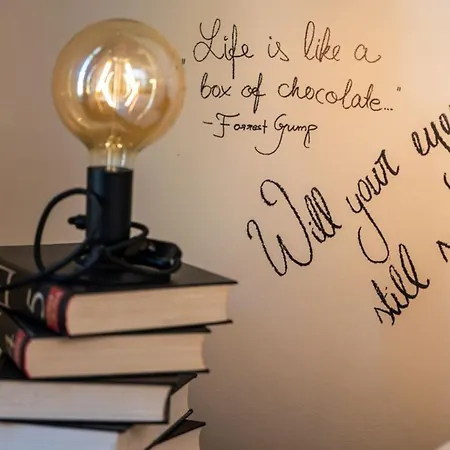 „Life is like a
box of chocolate..."
-Forrest Gump
Will your eye
still
5